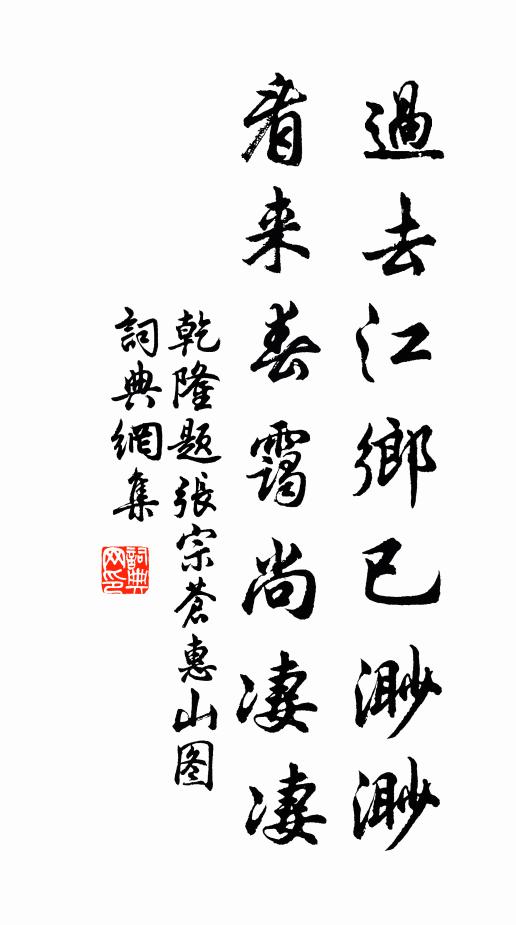 過去江鄉已渺渺
看来春靄尚淒淒
乾隆题張宗蒼惠山图
詞典網集
詞典网印